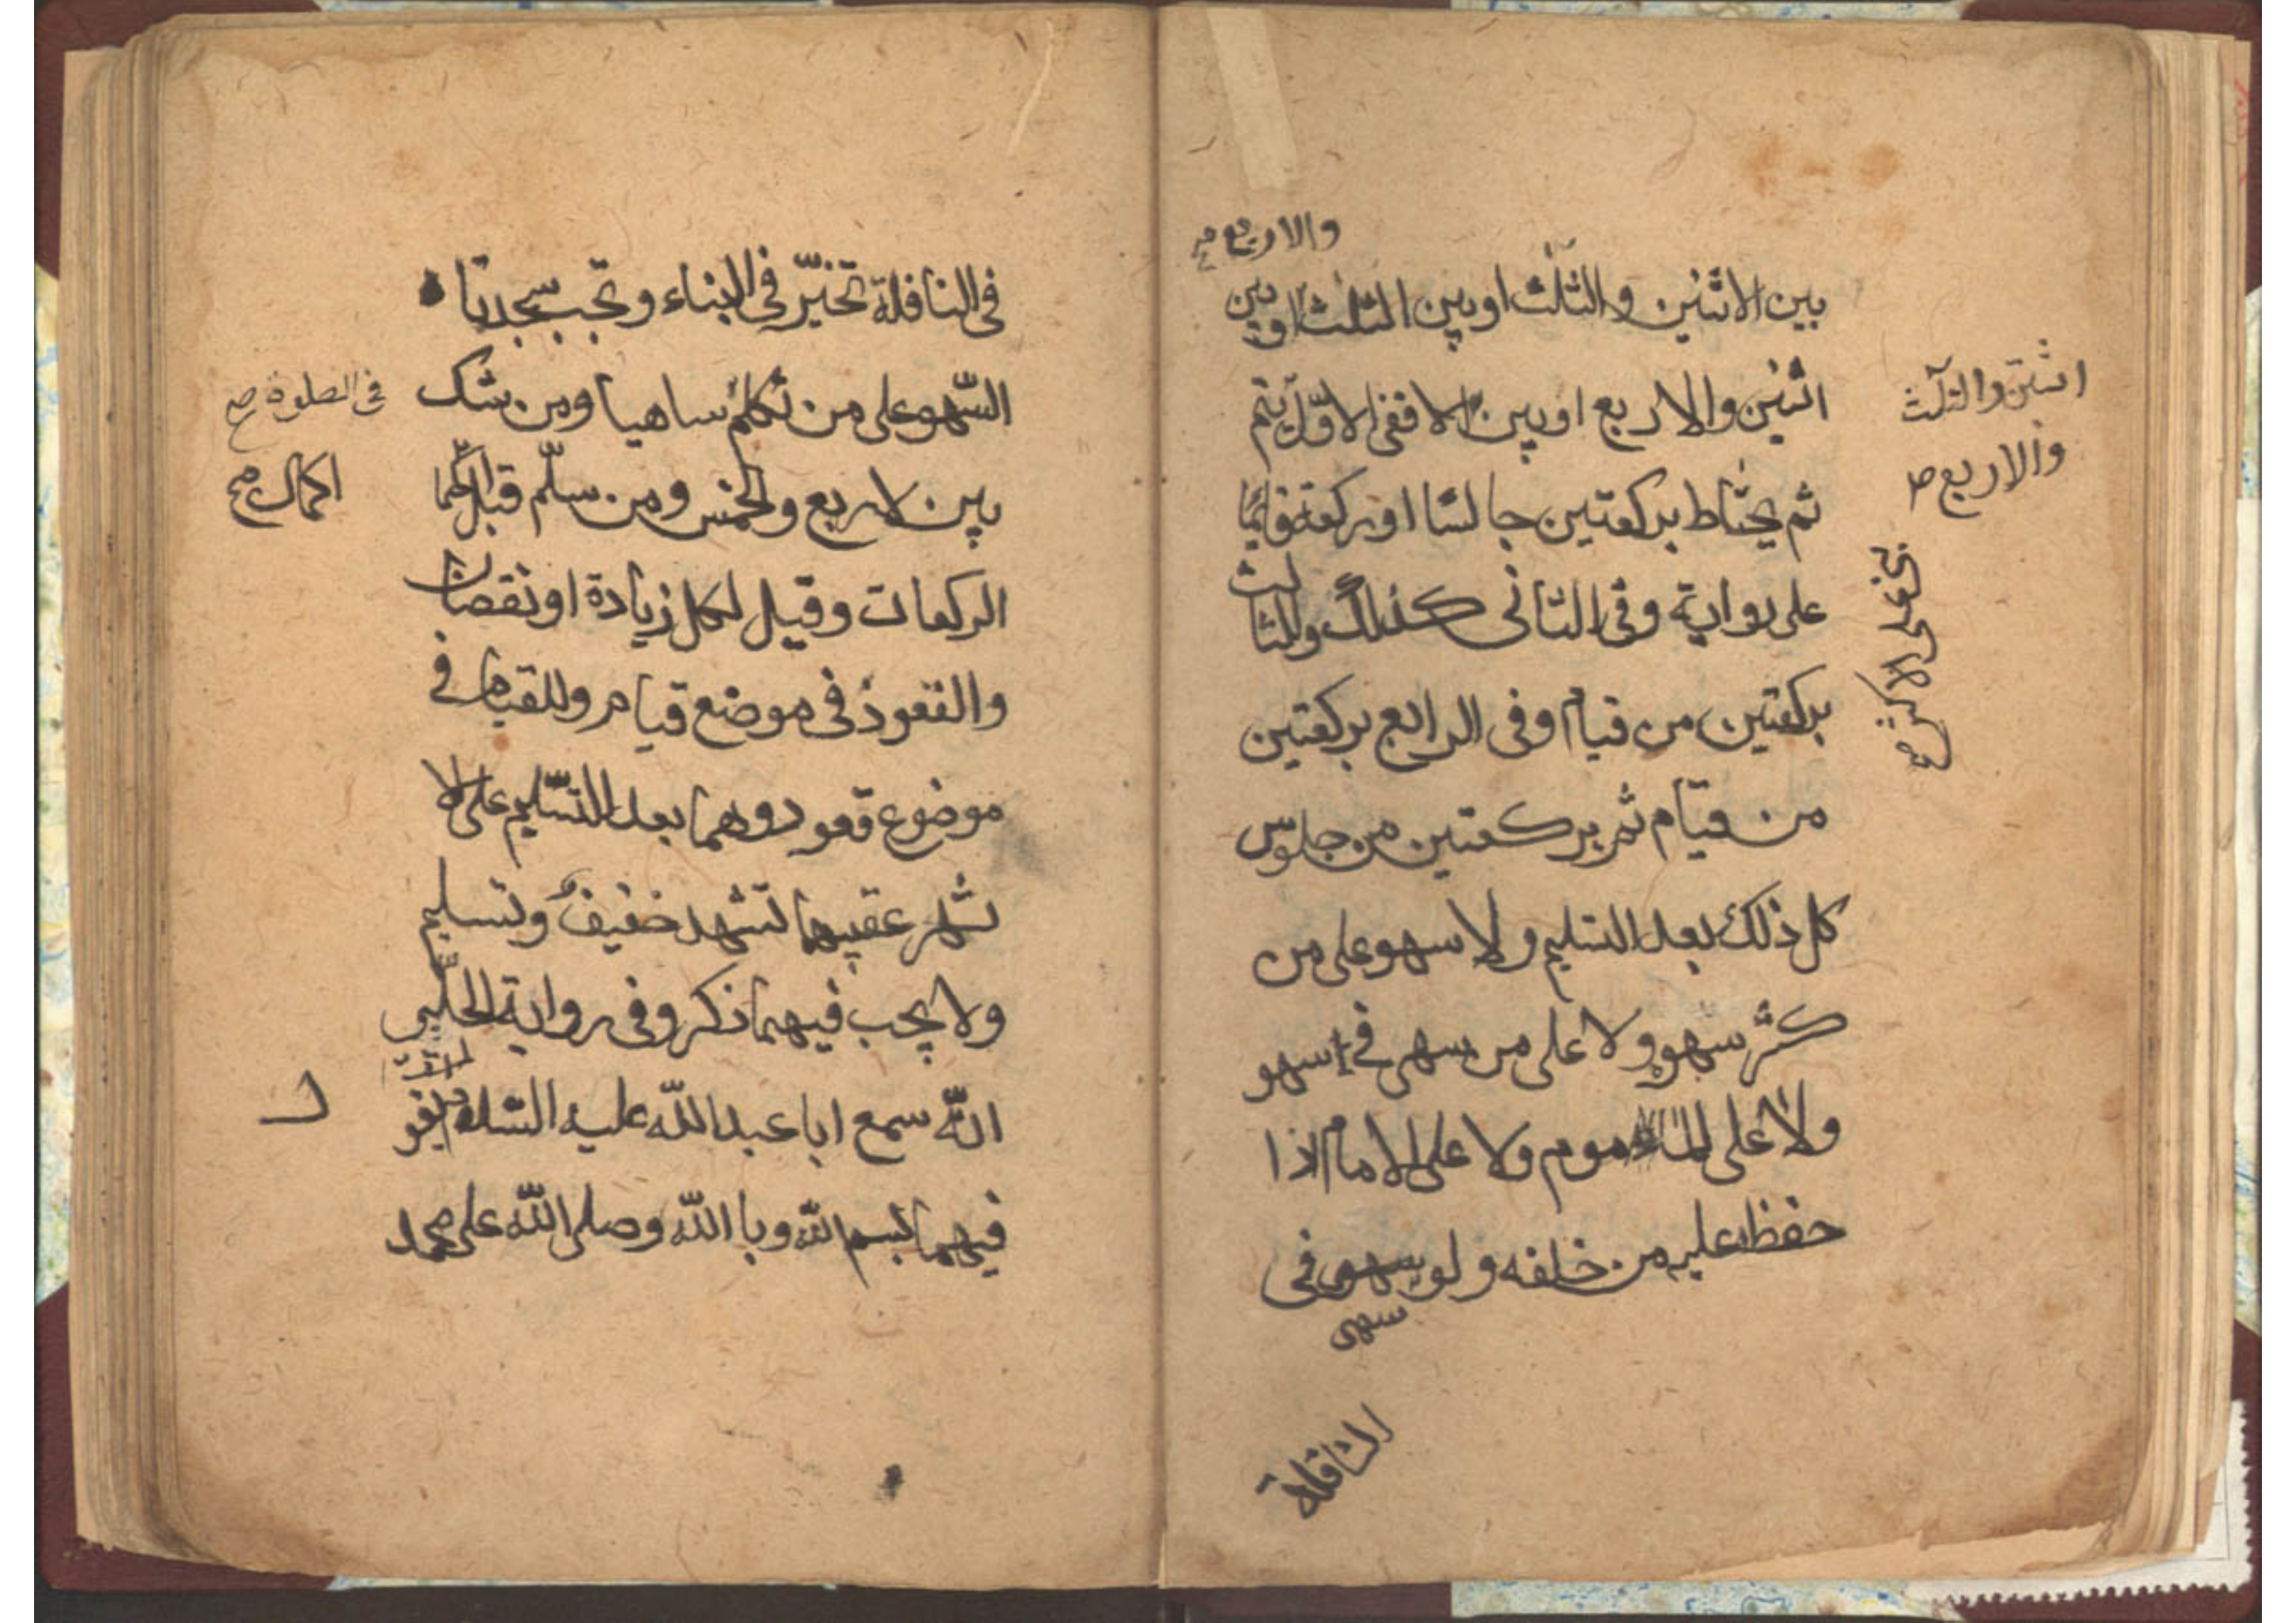 والاربع صح
بين الاثنين والثلث او بين الثلث او بين
اثنين والاربع او بين الا ففى الاوّل يتم
ثم يحتاط بركعتين جالسًا او ركعة قائمًا
على رواية وفى الثانى كذلك والثالث
بركعتين من قيام وفى الرابع بركعتين
من قيام ثم بركعتين من جلوس
كل ذلك بعد التسليم ولا سهو على من
كثر سهوه ولا على من سهى فى سهو
ولا على الماموم ولا على الامام اذا
حفظ عليه من خلفه ولو سهى فى
سهى
النافلة
اثنين والثلث
والاربع ص
على الاكثر صح
فى النافلة تخيّر فى البناء وتجب سجدتا
السّهو على من تكلم ساهيا ومن شك
بين لاربع والخمس ومن سلّم قبل
الركعات وقيل لكل زيادة او نقصان
والقعود فى موضع قيام وللقيام فى
موضوع قعود وهما بعد التسّليم على الا
شهر عقيبهما تشهد خفيف وتسليم
ولا يجب فيهما ذكر وفى رواية الحلّبى
انّه سمع ابا عبد اللّه عليه السّلام يقو
فيهما بسم اللّه وبا اللّه وصلى اللّه على محمد
فى الصلوة صح
اكمال صح